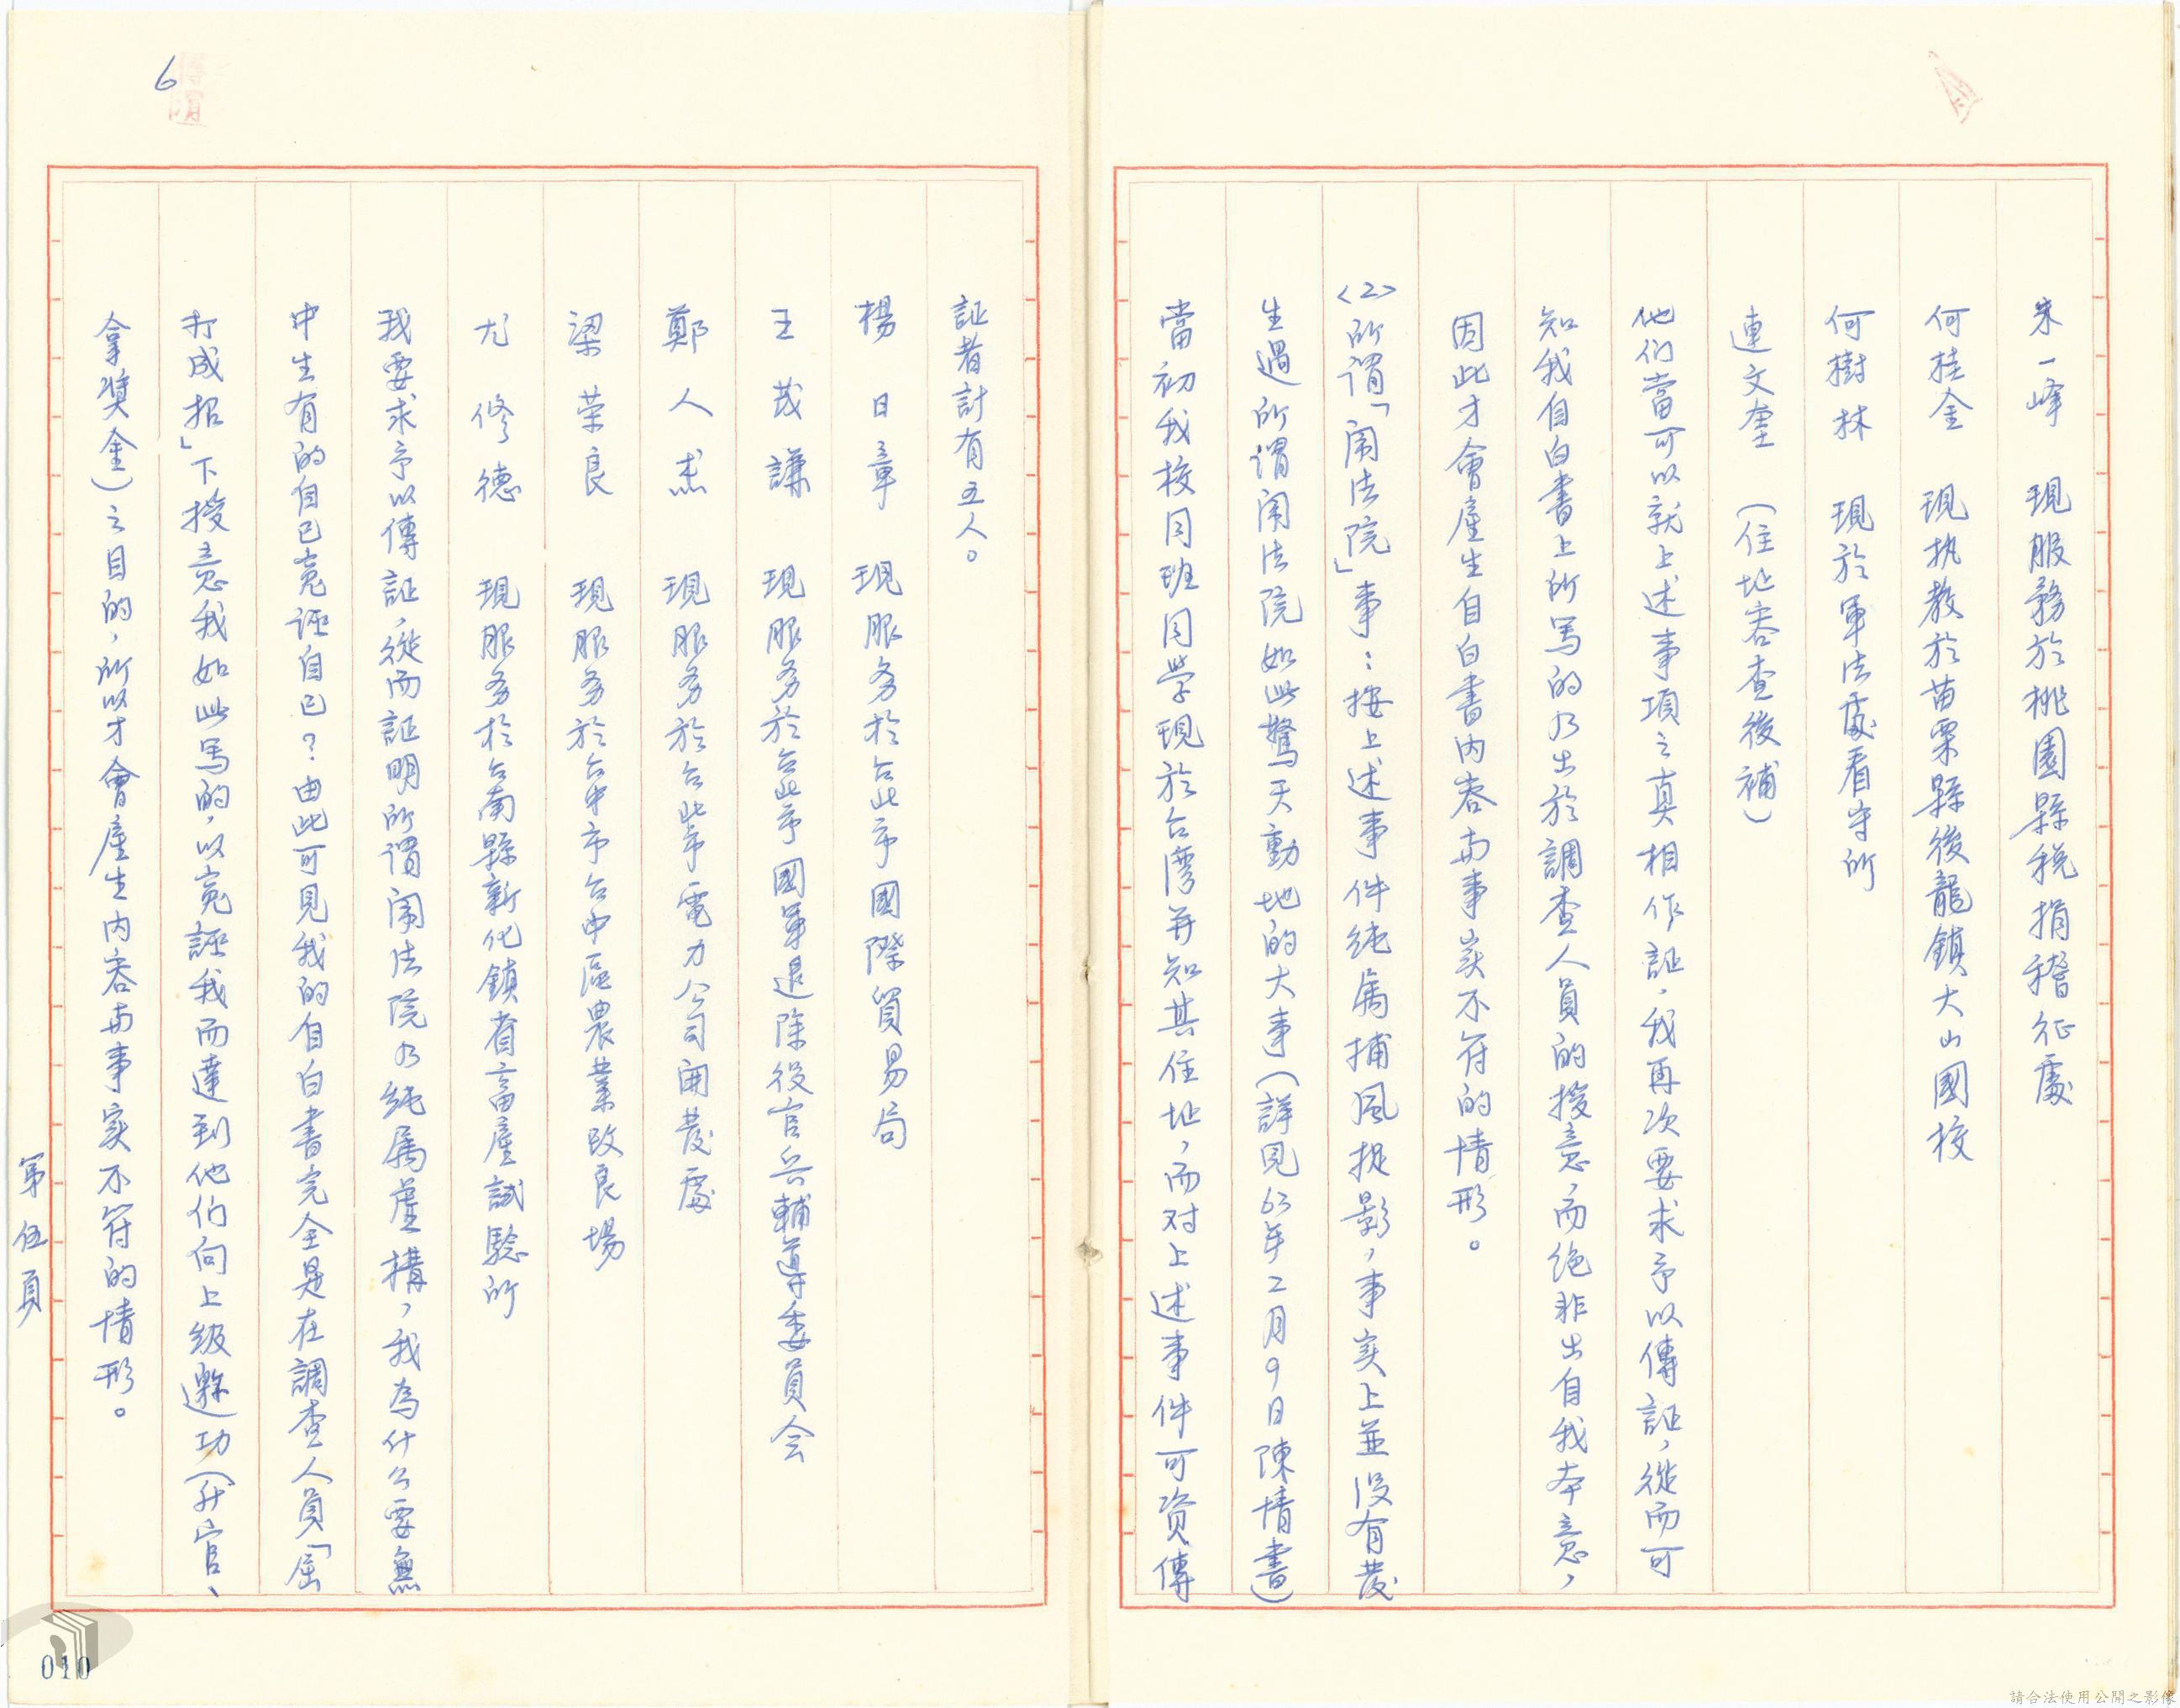 朱一峰　現服務於桃園縣稅捐稽征處
何桂金　現执教於苗栗縣後龍鎮大山國校
何樹林　現於軍法處看守所
連文奎　（住地容查後補）
他们當可以就上述事項之真相作証，我再次要求予以傳証，從而可
知我自白書上所写的乃出於調查人員的授意，而绝非出自我本意，
因此才會產生自白書內容与事实不符的情形。
<2>所谓「闹法院」事：按上述事件纯属捕風捉影，事实上並没有發
生過所谓闹法院如此驚天動地的大事（詳見63年2月9日陳情書）
當初我校同班同学現於台湾并知其住址，而对上述事件可資傳
証者計有五人。
楊日章　現服务於台北市國際貿易局
王茂謙　現服务於台北市國軍退除役官兵輔導委員会
鄭人　現服务於台北市電力公司開發處
梁荣良　現服务於台中市台中區農業改良場
尤修德　現服务於台南縣新化鎮省畜產試驗所
我要求予以傳証，從而証明所谓闹法院乃纯属虛構，我為什么要無
中生有的自己冤誣自己？由此可見我的自白書完全是在調查人員「屈
打成招」下授意我如此写的，以冤誣我而達到他们向上級邀功（升官、
拿獎金）之目的，所以才會產生内容与事实不符的情形。
第伍頁
6
010
請合法使用公開之影像